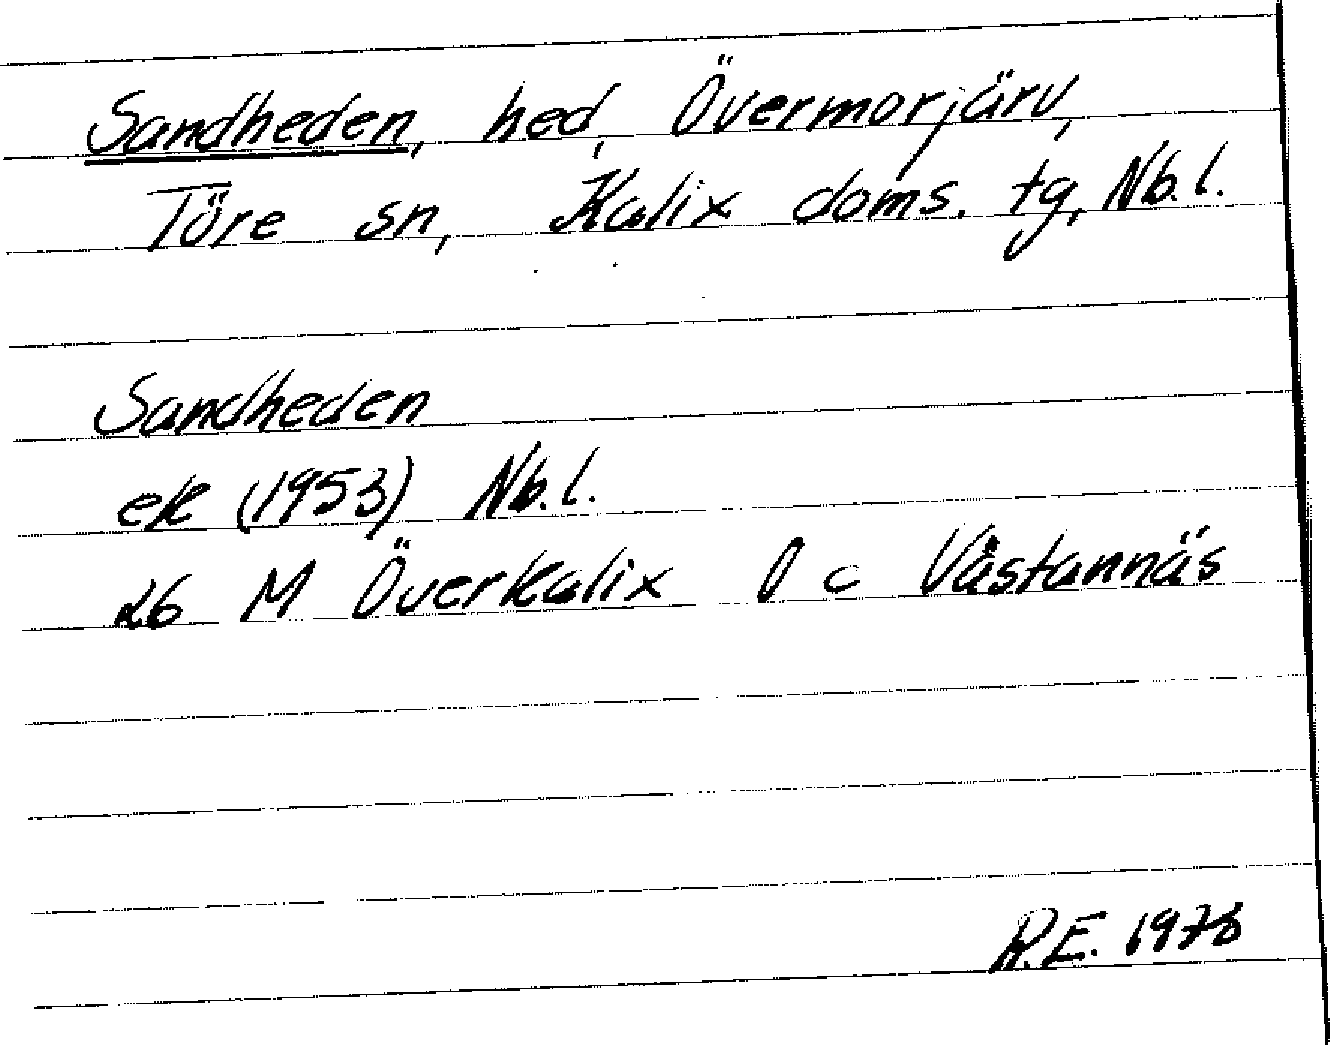 Sandheden, hed, Övermorjärv,
Töre sn, Kalix doms. tg, Nb.l.
Sandheden
ek (1953) Nb.l.
26 M Överkalix 0 c Västannäs
R.E. 1978